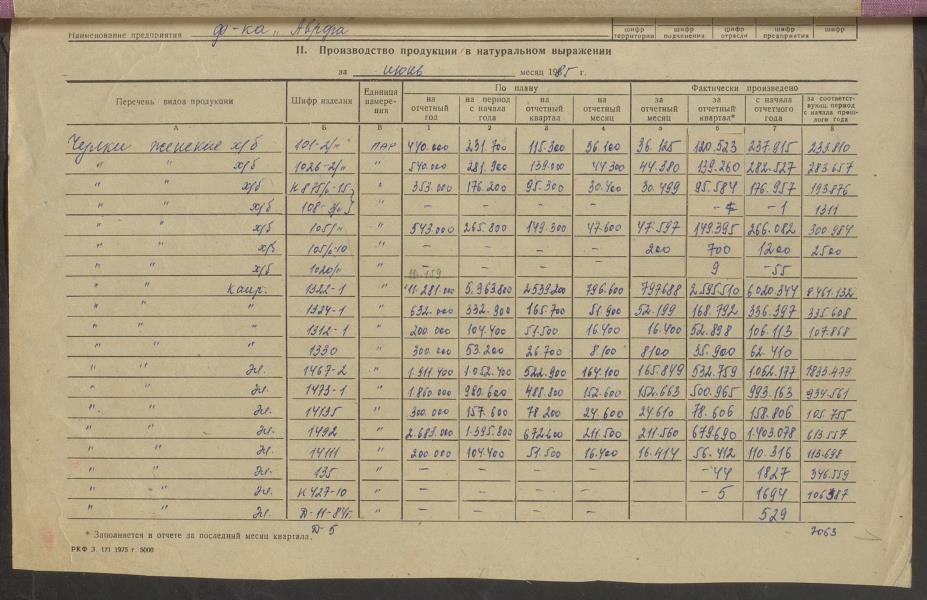 Наименование предприятия ф-ка „Аврора"
шифр территории шифр подчинения шифр отрасли шифр предприятия шифр
II. Производство продукции в натуральном выражении
за июнь месяц 1985 г.
Перечень видов продукции Шифр изделия Единица измерения По плану Фактически произведено
на отчетный год на период с начала года на отчетный квартал на отчетный месяц за отчетный месяц за отчетный квартал* с начала отчетного года за соответствующ период с начала прошлого года
А Б В 1 2 3 4 5 6 7 8
Чулки женские х/б 101-2/" пар 440.000 231.700 115.300 36.100 36.125 120.523 237.915 233.810
" " х/б 1026-2/" " 540.000 281.900 139.000 44.300 44.380 139.260 282.527 283.657
" " х/б К875/6-15 " 353.000 176.200 95.300 30.400 30.499 95.584 176.957 193.876
х/б " - - - - - 1 1311
" " х/б 105/" " 543.000 265.800 149.300 47.600 47.597 149.395 266.082 300.984
" " х/б 105/6-10 " - - - - 200 700 1200 2500
" " х/б 1020/" " - - - - 9 -55
10.159
" " капр. 1322-1 " 11.281.000 5.963.800 2539200 796.600 797688 2.595.510 6020.344 8461.132
" " " 1324-1 " 632.000 332.900 165.700 51.900 52.199 168.792 336.397 335.608
" " " 1312-1 " 200.000 104.400 51.500 16.400 16.400 52.898 106.113 107.868
" " " 1330 " 300.000 53.200 26.700 8100 8100 35.900 62.410
" " эл. 1467-2 " 1.911.400 1.052.400 522.900 164.100 165.849 532.759 1.062.177 1833.479
" " эл. 1473-1 " 1.860.000 980.600 485.800 152.600 152.663 500.965 993.163 934.561
" " эл. 14135 " 300.000 157.600 78.200 24.600 24.610 78.606 158.806 105.755
" " эл. 1492 " 2.683.000 1.395.800 672.600 211.500 211.560 679.690 1.403.078 613.557
" " эл. 14111 " 200.000 104.400 51.500 16.400 16.414 56.412 110.316 113.698
" " эл. 135 " - - - - -44 1827 346.559
" " эл. К427-10 " - - - - - 5 1694 106387
" " эл. Д-11-84г. " - - - - 529
* Заполняется в отчете за последний месяц квартала. Д-5 7063
РКФ З. 171 1975 г. 5000